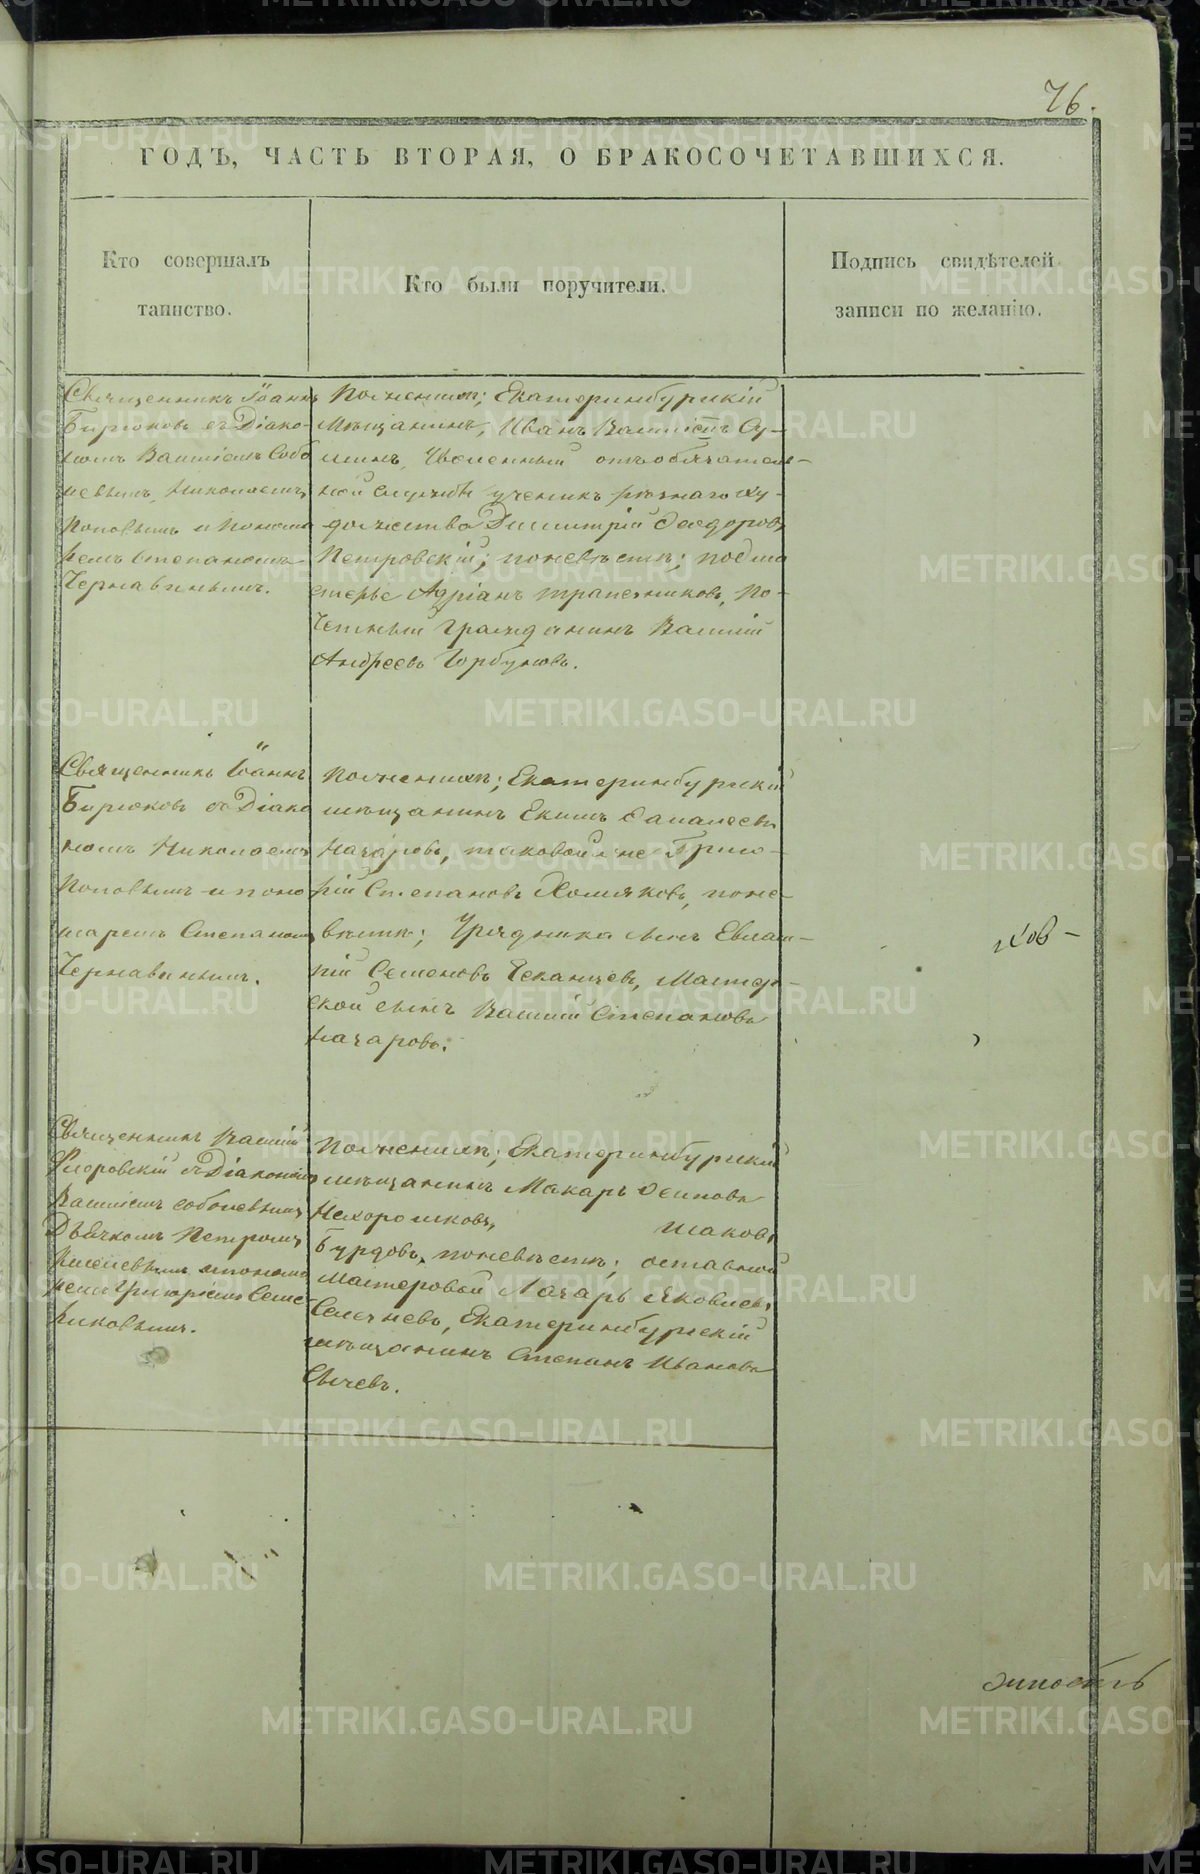 76.
ГОДЪ, ЧАСТЬ ВТОРАЯ, О БРАКОСОЧЕТАВШИХСЯ.
Кто совершалъ
таинство.
Кто были поручители.
Подпись свидѣтелей
записи по желанію.
Священникъ Іоаннъ
Бирюковъ съ Діако-
номъ Василіемъ Собо
левымъ, Николаемъ
Поповымъ и Понома
ремъ Степаномъ
Чернавинымъ.
По женихѣ; Екатеринбургскій
Мѣщанинъ, Иванъ Василіевъ Су-
инъ, Уволенный отъ обязатель-
ной службы ученикъ рѣзнаго ху-
дожества Димитрій Ѳеодоровъ
Петровскій; по невѣстѣ; подма
стерье Адріанъ Трапезниковъ, По-
четный гражданинъ Василій
Андреевъ Горбуновъ.
Священникъ Іоаннъ
Бирюковъ съ Діако
номъ Николаемъ
Поповымъ и поно
маремъ Степаномъ
Чернавинымъ.
По женихѣ; Екатеринбургскій
мѣщанинъ Екимъ
Назаровъ, таковой же Григо-
рій Степановъ Хомяковъ, по не
вѣстѣ; Урядника сынъ Евлам-
пій Семеновъ Мастер-
ской сынъ Василій Степановъ
Назаровъ.
ковъ -
Священникъ Василій
Флоровскій съ Діакономъ
Василіемъ Соболевымъ,
Дьячкомъ Петромъ
и понома
ремъ Григоріемъ
По женихѣ; Екатеринбургскій
мѣщанинъ Макаръ Осиповъ
Нехорошковъ, Іаковъ
Бурдовъ, по невѣстѣ; отставной
Мастеровой Лазарь Яковлевъ
Селезневъ, Екатеринбургскій
мѣщанинъ Степанъ Ивановъ
Сычевъ.
METRIKI.GASO-URAL.RU